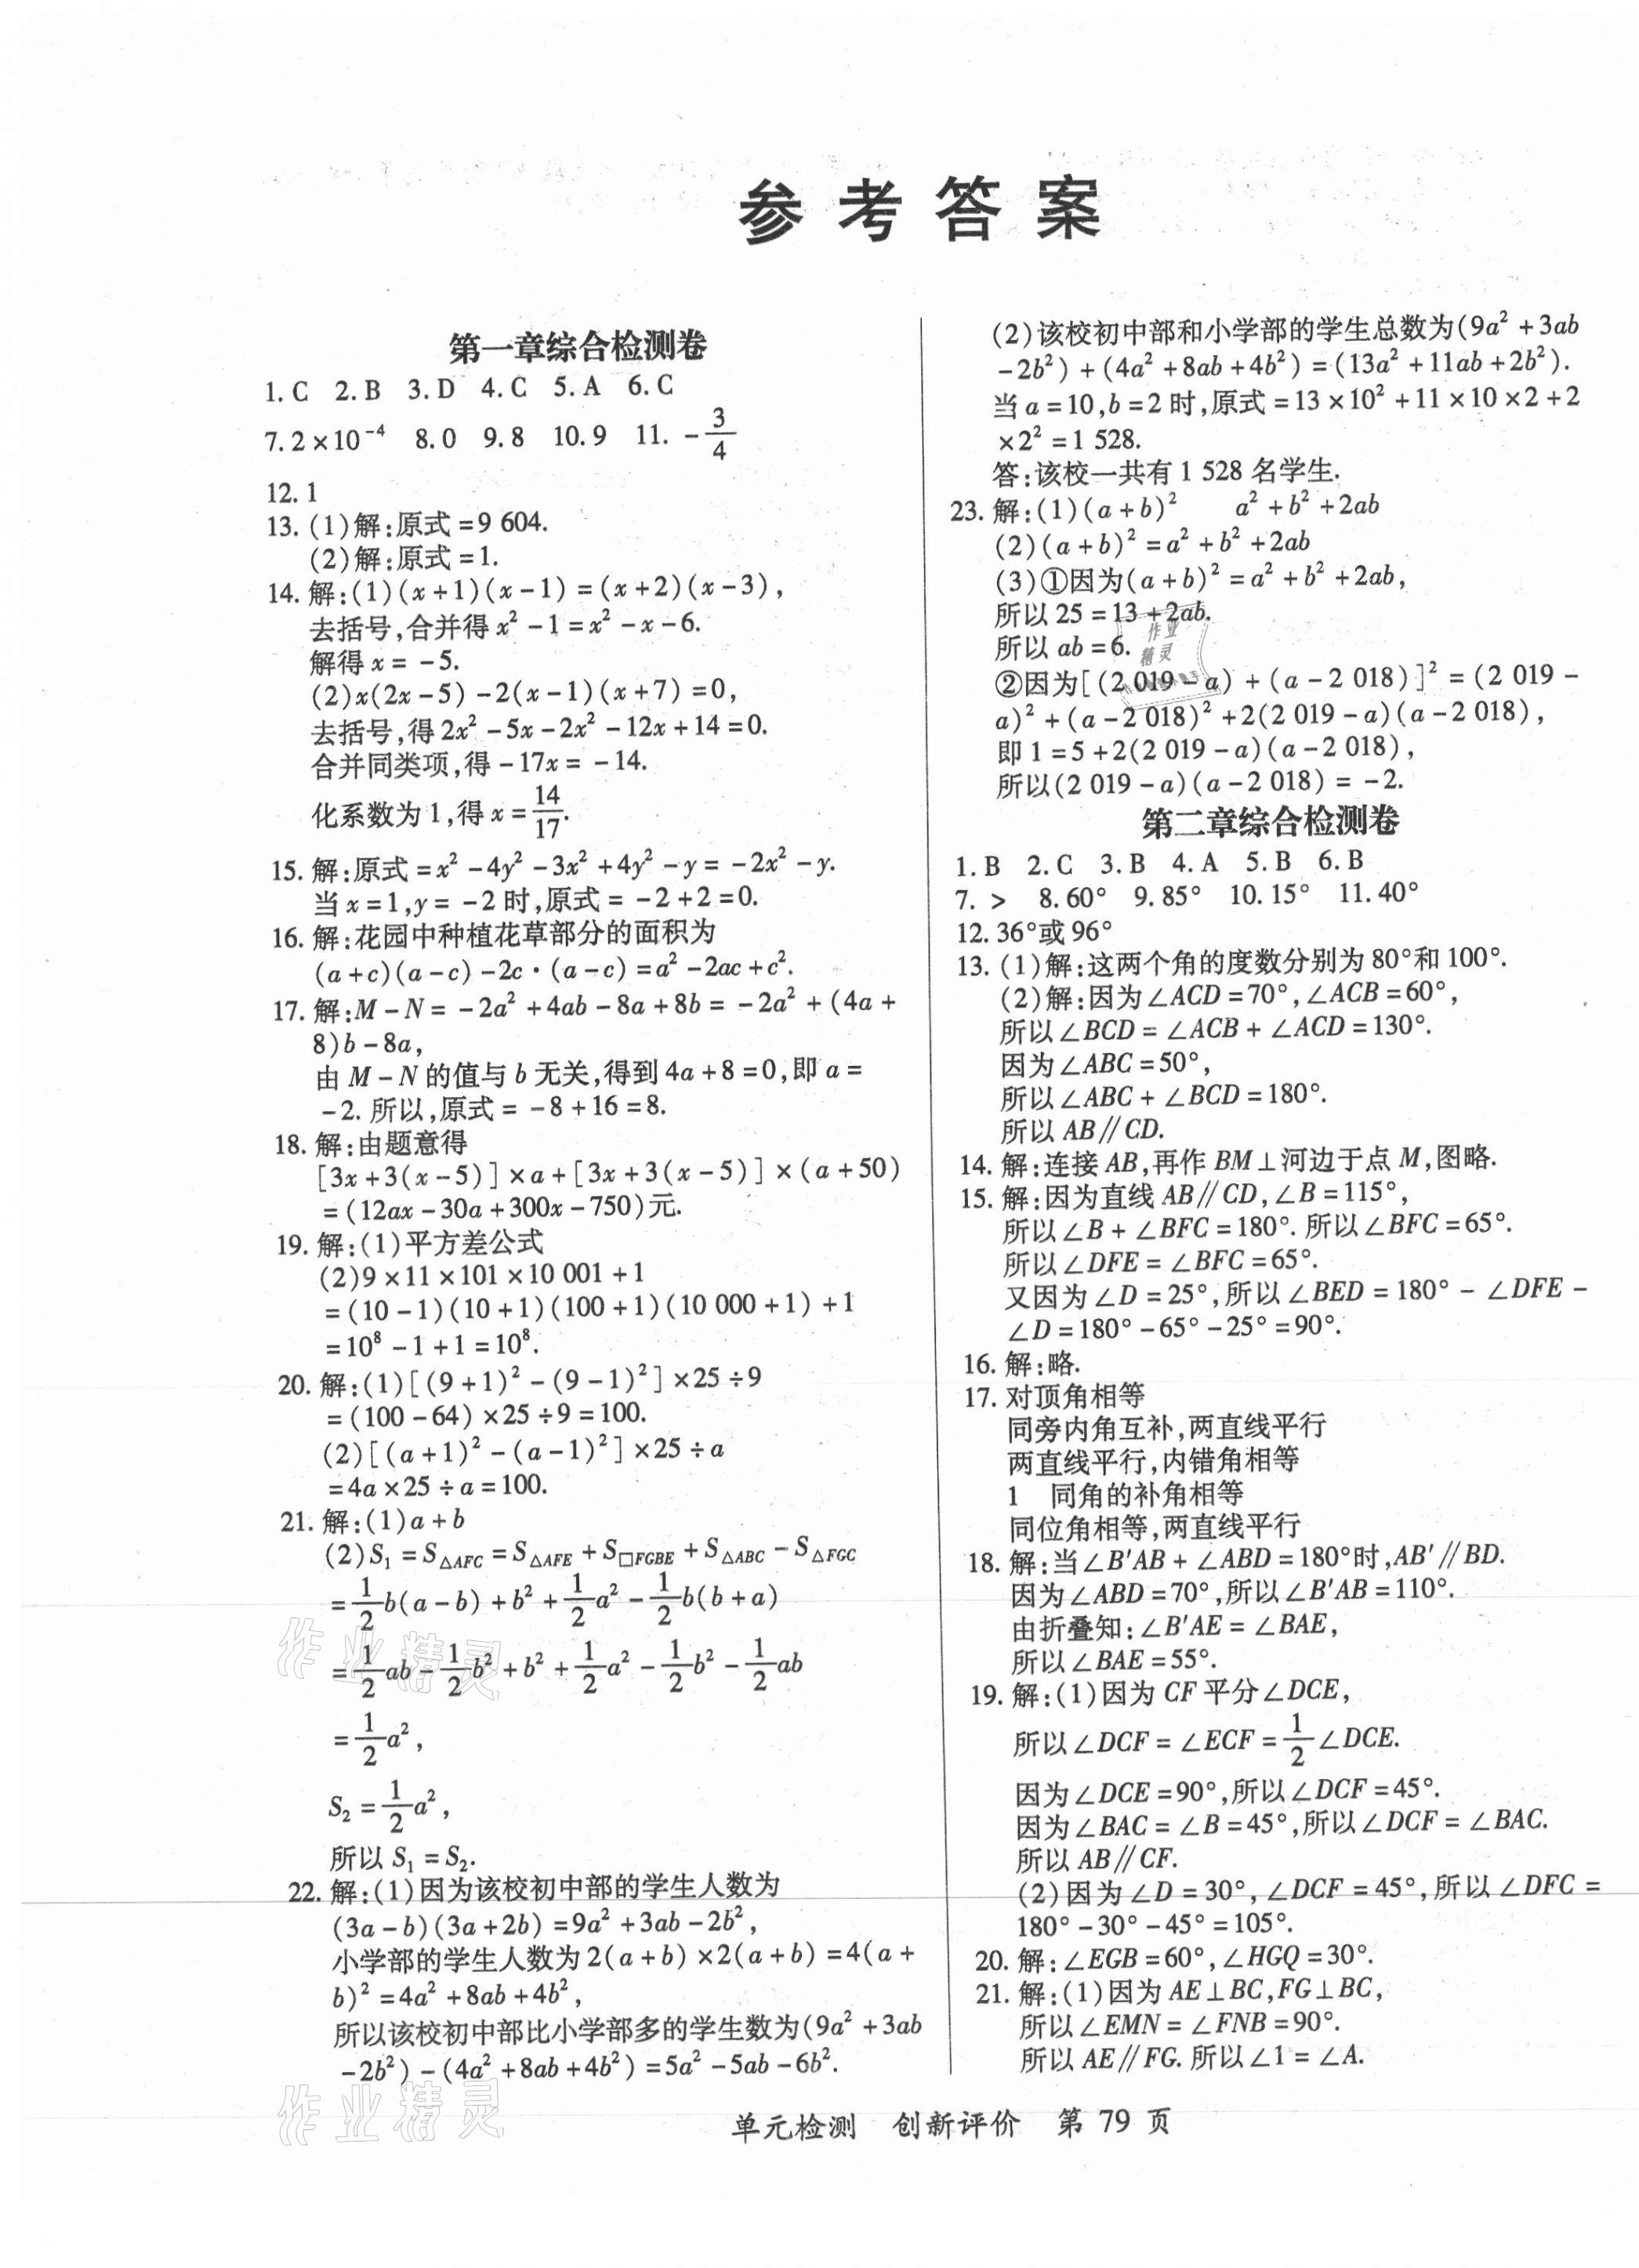 参考答案
第一章综合检测卷
1. C 2. B 3. D 4. C 5. A 6. C
7. 2×10⁻⁴ 8. 0 9. 8 10. 9 11. -3/4
12. 1
13. (1)解:原式=9 604.
(2)解:原式=1.
14. 解:(1)(x+1)(x-1)=(x+2)(x-3),
去括号,合并得x²-1=x²-x-6.
解得x=-5.
(2)x(2x-5)-2(x-1)(x+7)=0,
去括号,得2x²-5x-2x²-12x+14=0.
合并同类项,得-17x=-14.
化系数为1,得x=14/17.
15. 解:原式=x²-4y²-3x²+4y²-y=-2x²-y.
当x=1,y=-2时,原式=-2+2=0.
16. 解:花园中种植花草部分的面积为
(a+c)(a-c)-2c·(a-c)=a²-2ac+c².
17. 解:M-N=-2a²+4ab-8a+8b=-2a²+(4a+
8)b-8a,
由M-N的值与b无关,得到4a+8=0,即a=
-2. 所以,原式=-8+16=8.
18. 解:由题意得
[3x+3(x-5)]×a+[3x+3(x-5)]×(a+50)
=(12ax-30a+300x-750)元.
19. 解:(1)平方差公式
(2)9×11×101×10 001+1
=(10-1)(10+1)(100+1)(10 000+1)+1
=10⁸-1+1=10⁸.
20. 解:(1)[(9+1)²-(9-1)²]×25÷9
=(100-64)×25÷9=100.
(2)[(a+1)²-(a-1)²]×25÷a
=4a×25÷a=100.
21. 解:(1)a+b
(2)S₁=S△AFC=S△AFE+S□FGBE+S△ABC-S△FGC
=1/2b(a-b)+b²+1/2a²-1/2b(b+a)
=1/2ab-1/2b²+b²+1/2a²-1/2b²-1/2ab
=1/2a²,
S₂=1/2a²,
所以S₁=S₂.
22. 解:(1)因为该校初中部的学生人数为
(3a-b)(3a+2b)=9a²+3ab-2b²,
小学部的学生人数为2(a+b)×2(a+b)=4(a+
b)²=4a²+8ab+4b²,
所以该校初中部比小学部多的学生数为(9a²+3ab
-2b²)-(4a²+8ab+4b²)=5a²-5ab-6b².
(2)该校初中部和小学部的学生总数为(9a²+3ab
-2b²)+(4a²+8ab+4b²)=(13a²+11ab+2b²).
当a=10,b=2时,原式=13×10²+11×10×2+2
×2²=1 528.
答:该校一共有1 528名学生.
23. 解:(1)(a+b)² a²+b²+2ab
(2)(a+b)²=a²+b²+2ab
(3)①因为(a+b)²=a²+b²+2ab,
所以25=13+2ab.
所以ab=6.
②因为[(2 019-a)+(a-2 018)]²=(2 019-
a)²+(a-2 018)²+2(2 019-a)(a-2 018),
即1=5+2(2 019-a)(a-2 018),
所以(2 019-a)(a-2 018)=-2.
第二章综合检测卷
1. B 2. C 3. B 4. A 5. B 6. B
7. > 8. 60° 9. 85° 10. 15° 11. 40°
12. 36°或96°
13. (1)解:这两个角的度数分别为80°和100°.
(2)解:因为∠ACD=70°,∠ACB=60°,
所以∠BCD=∠ACB+∠ACD=130°.
因为∠ABC=50°,
所以∠ABC+∠BCD=180°.
所以AB∥CD.
14. 解:连接AB,再作BM⊥河边于点M,图略.
15. 解:因为直线AB∥CD,∠B=115°,
所以∠B+∠BFC=180°. 所以∠BFC=65°.
所以∠DFE=∠BFC=65°.
又因为∠D=25°,所以∠BED=180°-∠DFE-
∠D=180°-65°-25°=90°.
16. 解:略.
17. 对顶角相等
同旁内角互补,两直线平行
两直线平行,内错角相等
1 同角的补角相等
同位角相等,两直线平行
18. 解:当∠B′AB+∠ABD=180°时,AB′∥BD.
因为∠ABD=70°,所以∠B′AB=110°.
由折叠知:∠B′AE=∠BAE,
所以∠BAE=55°.
19. 解:(1)因为CF平分∠DCE,
所以∠DCF=∠ECF=1/2∠DCE.
因为∠DCE=90°,所以∠DCF=45°.
因为∠BAC=∠B=45°,所以∠DCF=∠BAC.
所以AB∥CF.
(2)因为∠D=30°,∠DCF=45°,所以∠DFC=
180°-30°-45°=105°.
20. 解:∠EGB=60°,∠HGQ=30°.
21. 解:(1)因为AE⊥BC,FG⊥BC,
所以∠EMN=∠FNB=90°.
所以AE∥FG. 所以∠1=∠A.
单元检测 创新评价 第79页
作业精灵
作业精灵
作业
精灵